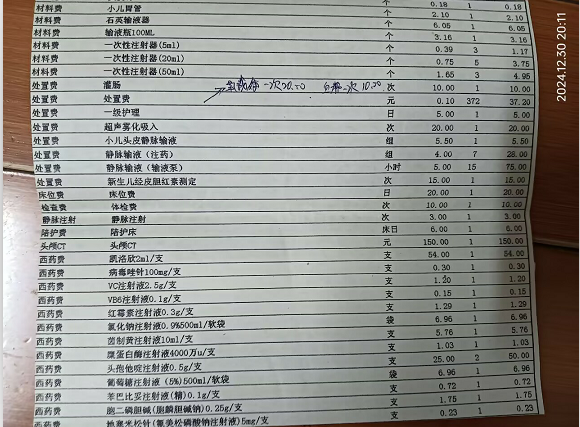 材料费 小儿胃管 个 0.18 1 0.18
材料费 石英输液器 个 2.10 1 2.10
材料费 输液瓶100ML 个 6.05 1 6.05
材料费 一次性注射器(5ml) 个 3.16 1 3.16
材料费 一次性注射器(20ml) 个 0.39 3 1.17
材料费 一次性注射器(50ml) 个 0.75 5 3.75
处置费 灌肠 个 1.65 3 4.95
一次20.00 一次10.00 次 10.00 1 10.00
处置费 处置费 元 0.10 372 37.20
处置费 一级护理 日 5.00 1 5.00
处置费 超声雾化吸入 次 20.00 1 20.00
处置费 小儿头皮静脉输液 组 5.50 1 5.50
处置费 静脉输液(注药) 组 4.00 7 28.00
处置费 静脉输液(输液泵) 小时 5.00 15 75.00
处置费 新生儿经皮胆红素测定 次 15.00 1 15.00
床位费 床位费 日 20.00 1 20.00
检查费 体检费 次 10.00 1 10.00
静脉注射 静脉注射 次 3.00 1 3.00
陪护费 陪护床 床日 6.00 1 6.00
头颅CT 头颅CT 元 150.00 1 150.00
西药费 凯洛欣2ml/支 支 54.00 1 54.00
西药费 病毒唑针100mg/支 支 0.30 1 0.30
西药费 VC注射液2.5g/支 支 1.20 1 1.20
西药费 VB6注射液0.1g/支 支 0.15 1 0.15
西药费 红霉素注射液0.3g/支 支 1.29 1 1.29
西药费 氯化钠注射液0.9%500ml/软袋 袋 6.96 1 6.96
西药费 茵制黄注射液10ml/支 支 5.76 1 5.76
西药费 糜蛋白酶注射液4000万u/支 支 1.03 1 1.03
西药费 头孢他啶注射液0.5g/支 支 25.00 2 50.00
西药费 葡萄糖注射液(5%)500ml/软袋 袋 6.96 1 6.96
西药费 苯巴比妥注射液(精)0.1g/支 支 0.72 1 0.72
西药费 胞二磷胆碱(胞磷胆碱钠)0.25g/支 支 1.75 1 1.75
西药费 地塞米松针(氟美松磷酸钠注射液)5mg/支 支 0.23 1 0.23
2024.12.30 20:11